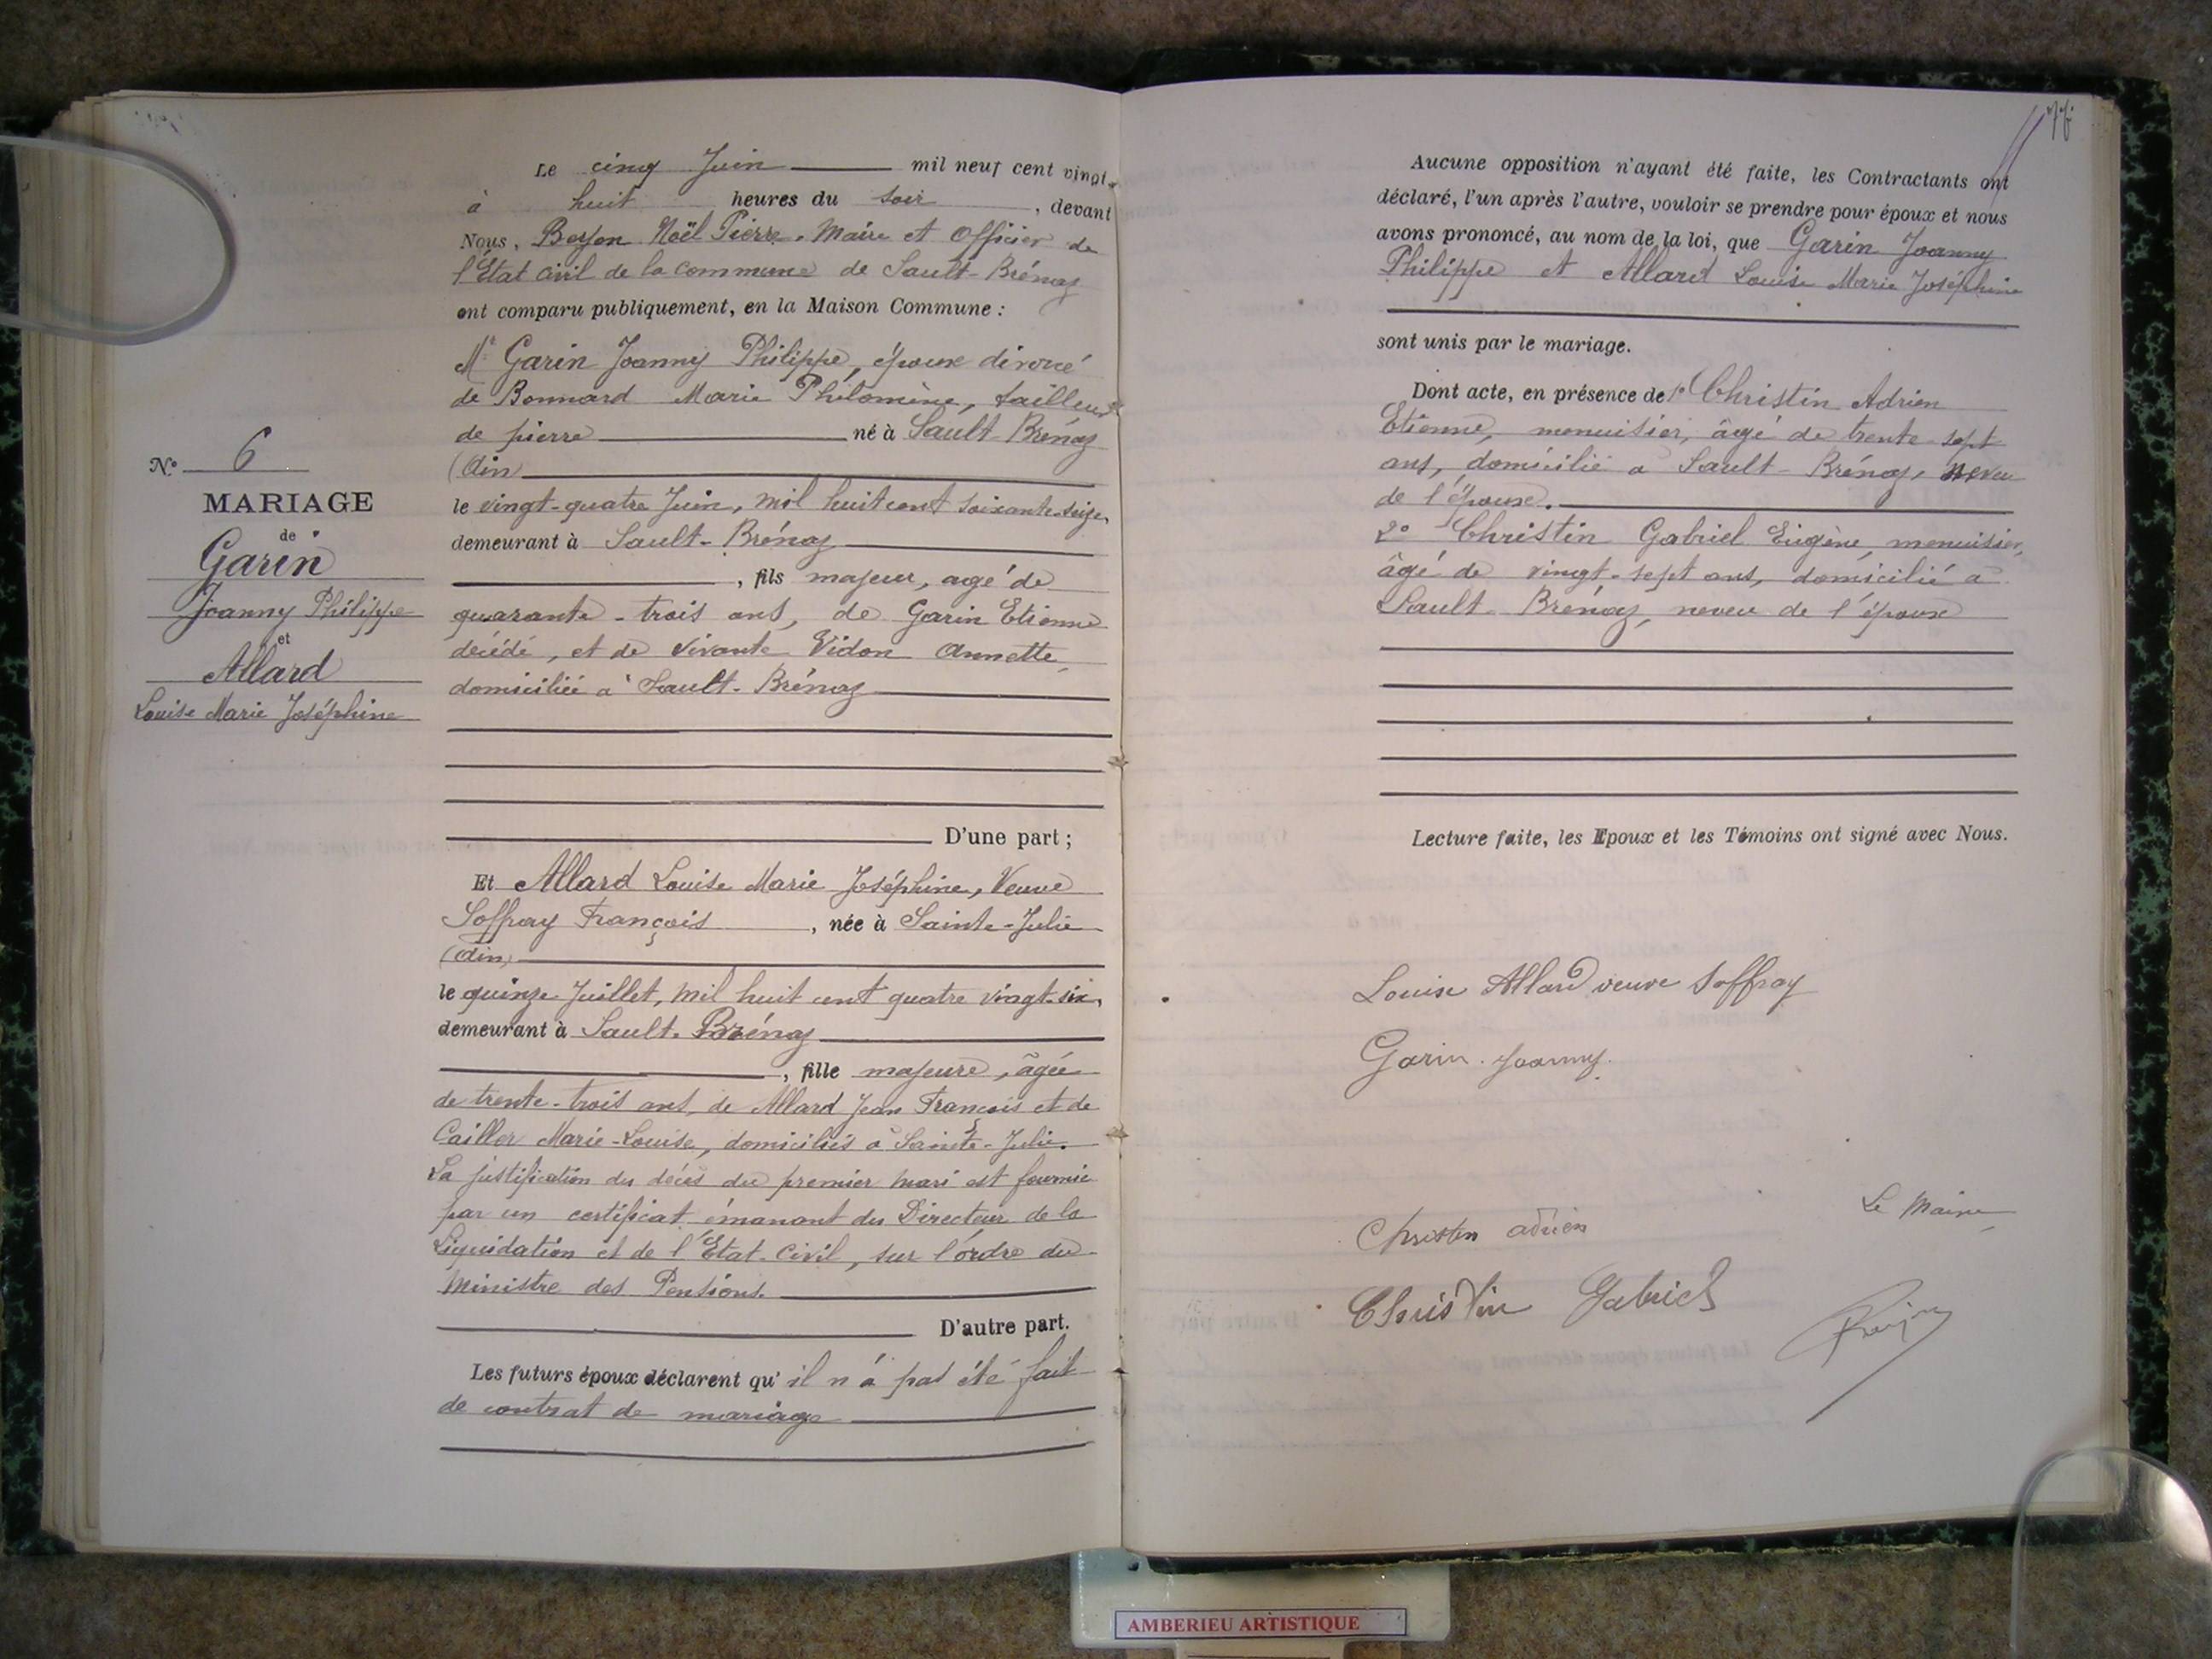 Le cinq Juin mil neuf cent vingt,
à huit heures du soir, devant
Nous, Noël Pierre, Maire et Officier de
l'État civil de la commune de Sault-Brénaz
ont comparu publiquement, en la Maison Commune :
Mr Garin Joanny Philippe, époux divorcé
de Bonnard Marie Philomène, tailleur
de pierre né à Sault-Brénaz
(Ain)
le vingt-quatre Juin, mil huit cent soixante-seize,
demeurant à Sault-Brénaz
, fils majeur, agé de
quarante-trois ans, de Garin Etienne
décédé, et de vivante Vidon Annette,
domiciliée à Sault-Brénaz
D'une part ;
N° 6
MARIAGE
de
Garin
Joanny Philippe
et
Allard
Louise Marie Joséphine
Et Allard Louise Marie Joséphine, Veuve
Soffray François, née à Sainte-Julie
(Ain)
le quinze Juillet, mil huit cent quatre vingt-six,
demeurant à Sault-Brénaz
, fille majeure, âgée
de trente-trois ans, de Allard Jean François et de
Cailler Marie-Louise, domiciliés à Sainte-Julie.
La justification du décès du premier mari est fournie
par un certificat émanant du Directeur de la
Liquidation et de l'Etat-Civil, sur l'ordre du
Ministre des Pensions.
D'autre part.
Les futurs époux déclarent qu'il n'a pas été fait
de contrat de mariage
Aucune opposition n'ayant été faite, les Contractants ont
déclaré, l'un après l'autre, vouloir se prendre pour époux et nous
avons prononcé, au nom de la loi, que Garin Joanny
Philippe et Allard Louise Marie Joséphine
sont unis par le mariage.
Dont acte, en présence de 1° Christin Adrien
Etienne, menuisier, âgé de trente-sept
ans, domicilié à Sault-Brénaz, neveu
de l'épouse.
2° Christin Gabriel Eugène, menuisier,
âgé de vingt-sept ans, domicilié à
Sault-Brénaz, neveu de l'épouse
Lecture faite, les Epoux et les Témoins ont signé avec Nous.
Louise Allard veuve Soffray
Garin Joanny.
Christin adrien
Le Maire
Christin Gabriel
AMBERIEU ARTISTIQUE